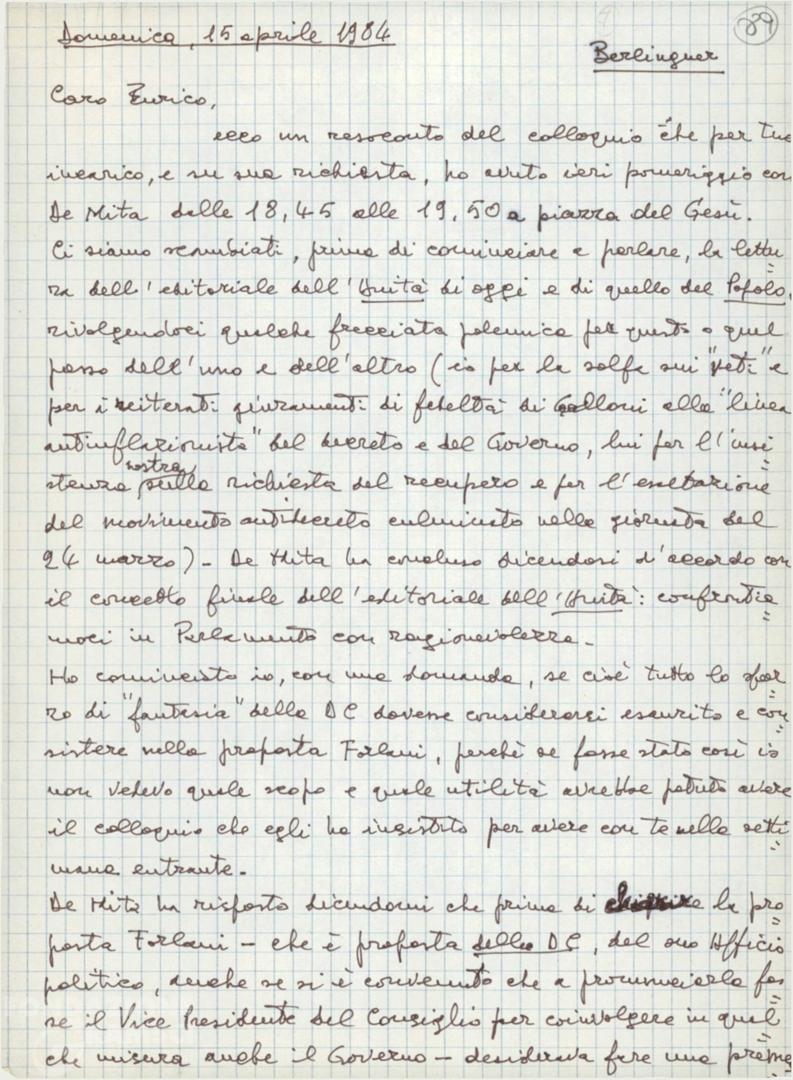 239
Domenica, 15 aprile 1984
Berlinguer
Caro Enrico,
ecco un resoconto del colloquio che per tuo
incarico, e su sua richiesta, ho avuto ieri pomeriggio con
De Mita dalle 18,45 alle 19,50 a piazza del Gesù.
Ci siamo scambiati, prima di cominciare a parlare, la lettu=
ra dell'editoriale dell'Unità di oggi e di quello del Popolo,
rivolgendoci qualche frecciata polemica per questo o quel
passo dell'uno e dell'altro (io per la solfa sui "veti" e
per i reiterati giuramenti di fedeltà di Galloni alla "linea
antinflazionista" del decreto e del Governo, lui per l'insi=
stenza nostra sulla richiesta del recupero e per l'esaltazione
del movimento antidecreto culminato nella giornata del
24 marzo) - De Mita ha concluso dicendosi d'accordo con
il concetto finale dell'editoriale dell'Unità: confrontia=
moci in Parlamento con ragionevolezza -
Ho cominciato io, con una domanda, se cioè tutto lo sfor=
zo di "fantasia" della DC dovesse considerarsi esaurito e con=
sistere nella proposta Forlani, perché se fosse stato così io
non vedevo quale scopo e quale utilità avrebbe potuto avere
il colloquio che egli ha insistito per avere con te nella setti=
mana entrante.
De Mita ha risposto dicendomi che prima di la pro=
posta Forlani - che è proposta della DC, del suo Ufficio
politico, anche se si è convenuto che a pronunciarla fos=
se il Vice Presidente del Consiglio per coinvolgere in qual=
che misura anche il Governo - desiderava fare una preme=